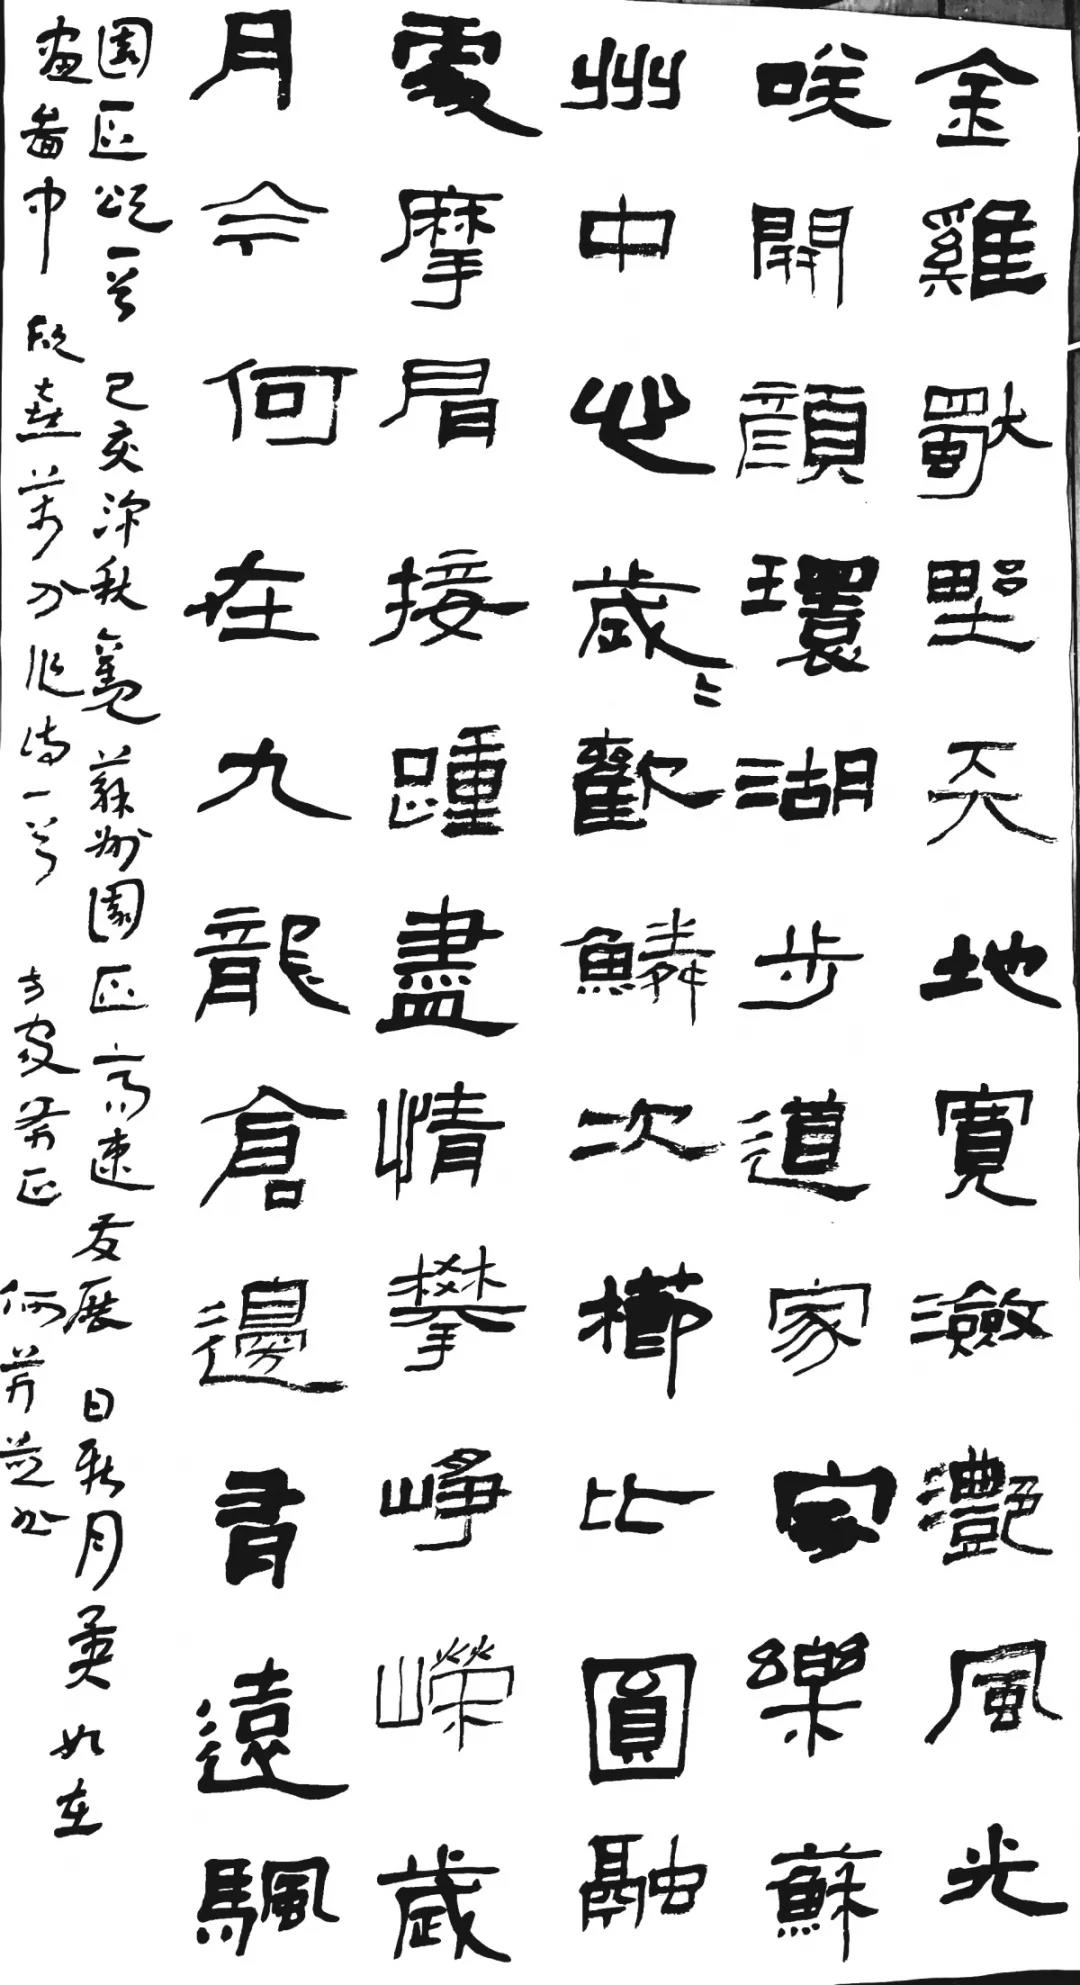 金雞獨墅天地寬瀲灩風光
咲開顏環湖步道家家樂蘇
州中心歲〻歡鱗次櫛比圓融
處摩肩接踵盡情攀崢嶸歲
月今何在九龍倉邊看遠颿
園區頌一首 己亥深秋觀蘇州園區高速发展 日新月異如在
畫圖中 欣喜萬分作詩一首 方家斧正 何並书